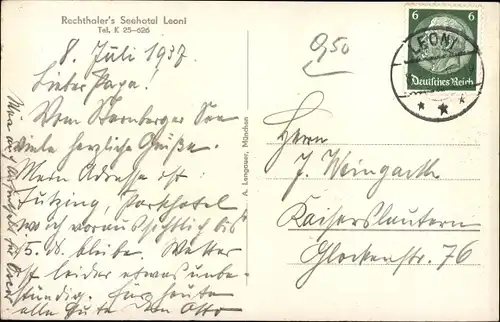 Rechthaler's Seehotel Leoni
Tel. K 25-626
8. Juli 1937
Lieber Papa!
Vom Starnberger See
viele herzliche Grüße.
Mein Adresse ist:
Tutzing, Parkhotel
wo ich voraussichtlich bis
15. ds. bleibe. Wetter
leider etwas unbe-
ständig. Für heute
alle Gute Von Otto
A. Lengauer, München
9,50
6 6
Deutsches Reich
LEONI
Herrn
J. Weingarth
Kaiserslautern
Glockenstr. 76